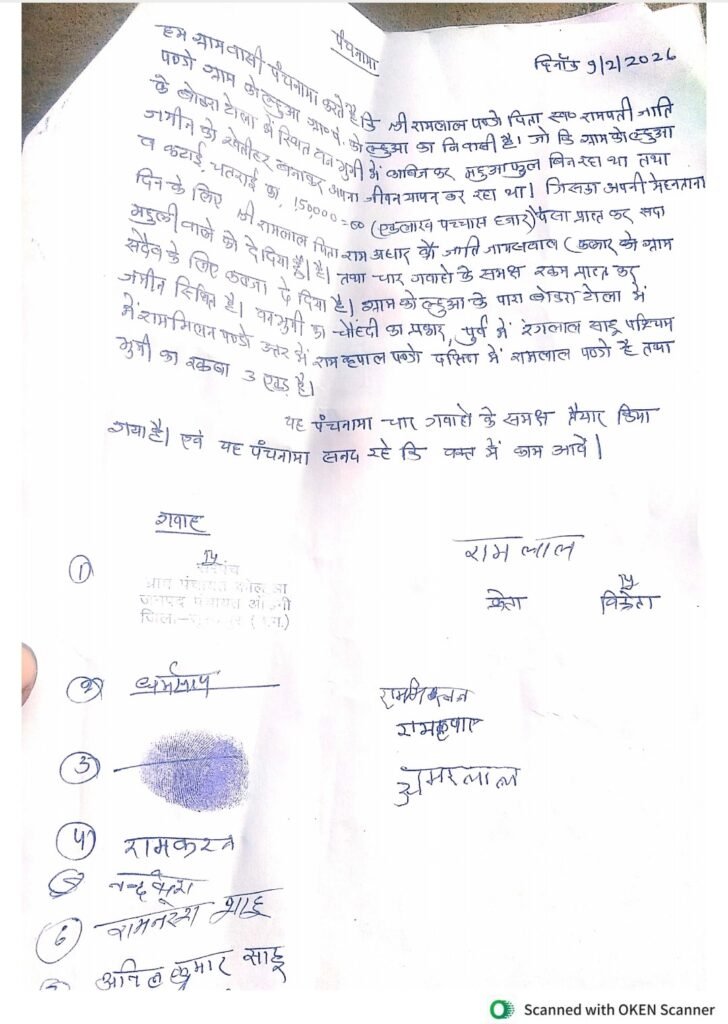 पंचनामा
दिनाँक 9/2/2026
हम ग्रामवासी पंचनामा करते है कि श्री रामलाल पण्डो पिता स्व० रामपती जाति
पण्डो ग्राम कोल्हुआ ग्रा०पं. कोल्हुआ का निवासी है। जो कि ग्राम कोल्हुआ
के बोडरा टोला में स्थित वन भुमी में काबिज कर महुआ फुल बिन रहा था तथा
जमीन को खेतीहर बनाकर अपना जीवन यापन कर रहा था। जिसका अपनी मेहनताना
व कटाई, चतराई का, 150000=00 (एक लाख पच्चास हजार) पैसा प्राप्त कर सदा
दिन के लिए श्री रामलाल पिता राम अधार की जाति जायसवाल (कलार को ग्राम
महुली वाजे को दे दिया है। है। तथा चार गवाहो के समक्ष रकम प्राप्त कर
सदैव के लिए कब्जा दे दिया है। ग्राम कोल्हुआ के पारा बोडरा टोला में
जमीन स्थित है। वन भुमी का चौहदी का प्रकार, पुर्व में रंगलाल साहू पश्चिम
में राममिलन पण्डो उत्तर में रामकृपाल पण्डो दक्षिण में रामलाल पण्डो है तथा
भुमी का रकबा 3 एकड़ है।
यह पंचनामा चार गवाहो के समक्ष तैयार किया
गया है। एवं यह पंचनामा सनद रहे कि वक्त में काम आवें।
गवाह
रामलाल
क्रेता
विक्रेता
①
सरपंच
ग्राम पंचायत कोल्हुआ
जनपद पंचायत
②
राममिलन
रामकृपाल
③
अमरलाल
④ रामकरन
रामनरेश साहू
6
अनिल कुमार साहू
Scanned with OKEN Scanner